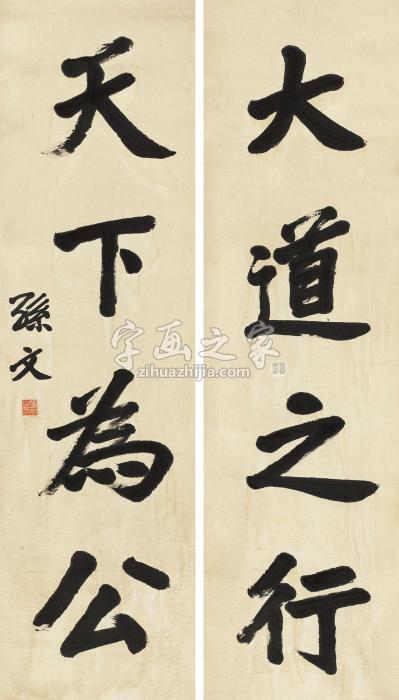 大道之行
天下為公
孫文
字画之家
zihuazhijia.com